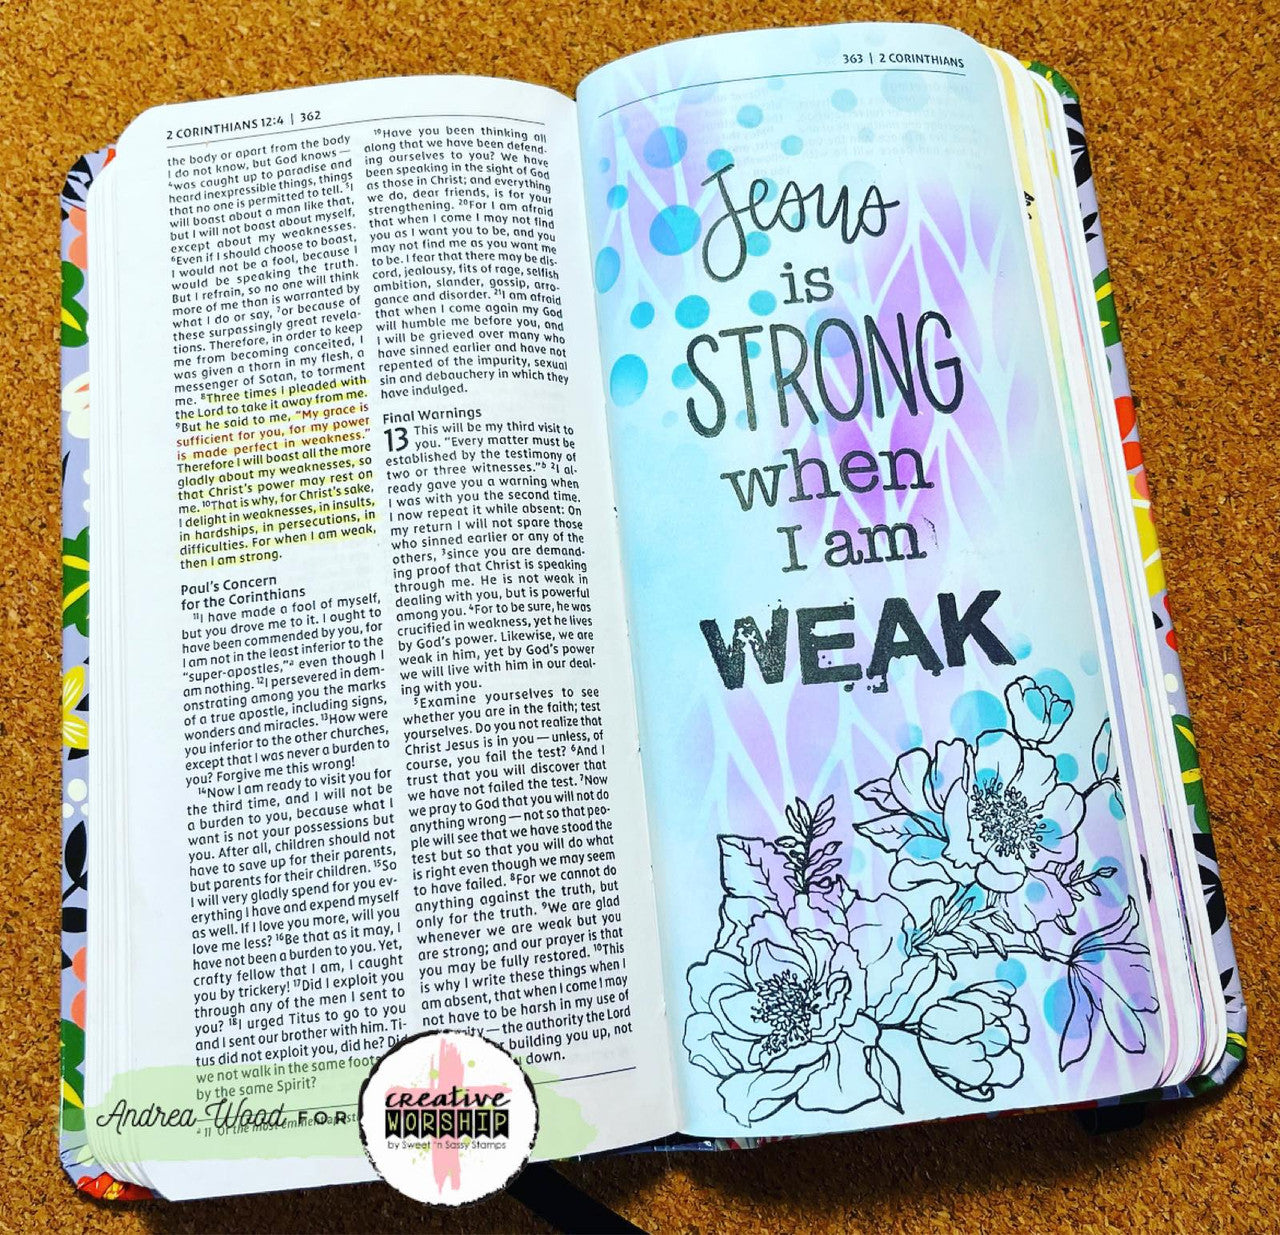 2 CORINTHIANS 12:4 | 362
the body or apart from the body
I do not know, but God knows —
⁴was caught up to paradise and
heard inexpressible things, things
that no one is permitted to tell. ⁵I
will boast about a man like that,
but I will not boast about myself,
except about my weaknesses.
⁶Even if I should choose to boast,
I would not be a fool, because I
would be speaking the truth.
But I refrain, so no one will think
more of me than is warranted by
what I do or say, ⁷or because of
these surpassingly great revela-
tions. Therefore, in order to keep
me from becoming conceited, I
was given a thorn in my flesh, a
messenger of Satan, to torment
me. ⁸Three times I pleaded with
the Lord to take it away from me.
⁹But he said to me, “My grace is
sufficient for you, for my power
is made perfect in weakness.”
Therefore I will boast all the more
gladly about my weaknesses, so
that Christ’s power may rest on
me. ¹⁰That is why, for Christ’s sake,
I delight in weaknesses, in insults,
in hardships, in persecutions, in
difficulties. For when I am weak,
then I am strong.
Paul’s Concern
for the Corinthians
¹¹I have made a fool of myself,
but you drove me to it. I ought to
have been commended by you, for
I am not in the least inferior to the
“super-apostles,”ᵃ even though I
am nothing. ¹²I persevered in dem-
onstrating among you the marks
of a true apostle, including signs,
wonders and miracles. ¹³How were
you inferior to the other churches,
except that I was never a burden to
you? Forgive me this wrong!
¹⁴Now I am ready to visit you for
the third time, and I will not be
a burden to you, because what I
want is not your possessions but
you. After all, children should not
have to save up for their parents,
but parents for their children. ¹⁵So
I will very gladly spend for you ev-
erything I have and expend myself
as well. If I love you more, will you
love me less? ¹⁶Be that as it may, I
have not been a burden to you. Yet,
crafty fellow that I am, I caught
you by trickery! ¹⁷Did I exploit you
through any of the men I sent to
you? ¹⁸I urged Titus to go to you
and I sent our brother with him. Ti-
tus did not exploit you, did he? Did
we not walk in the same foots
by the same Spirit?
ᵃ 11 Or the most eminent apost
¹⁹Have you been thinking all
along that we have been defend-
ing ourselves to you? We have
been speaking in the sight of God
as those in Christ; and everything
we do, dear friends, is for your
strengthening. ²⁰For I am afraid
that when I come I may not find
you as I want you to be, and you
may not find me as you want me
to be. I fear that there may be dis-
cord, jealousy, fits of rage, selfish
ambition, slander, gossip, arro-
gance and disorder. ²¹I am afraid
that when I come again my God
will humble me before you, and
I will be grieved over many who
have sinned earlier and have not
repented of the impurity, sexual
sin and debauchery in which they
have indulged.
Final Warnings
13 This will be my third visit to
you. “Every matter must be
established by the testimony of
two or three witnesses.”ᵇ ²I al-
ready gave you a warning when
I was with you the second time.
I now repeat it while absent: On
my return I will not spare those
who sinned earlier or any of the
others, ³since you are demand-
ing proof that Christ is speaking
through me. He is not weak in
dealing with you, but is powerful
among you. ⁴For to be sure, he was
crucified in weakness, yet he lives
by God’s power. Likewise, we are
weak in him, yet by God’s power
we will live with him in our deal-
ing with you.
⁵Examine yourselves to see
whether you are in the faith; test
yourselves. Do you not realize that
Christ Jesus is in you — unless, of
course, you fail the test? ⁶And I
trust that you will discover that
we have not failed the test. ⁷Now
we pray to God that you will not do
anything wrong — not so that peo-
ple will see that we have stood the
test but so that you will do what
is right even though we may seem
to have failed. ⁸For we cannot do
anything against the truth, but
only for the truth. ⁹We are glad
whenever we are weak but you
are strong; and our prayer is that
you may be fully restored. ¹⁰This
is why I write these things when I
am absent, that when I come I may
not have to be harsh in my use of
ity — the authority the Lord
r building you up, not
u down.
363 | 2 CORINTHIANS
Jesus
is
STRONG
when
I am
WEAK
Andrea Wood FOR
creative
WORSHIP
by Sweet 'n Sassy Stamps